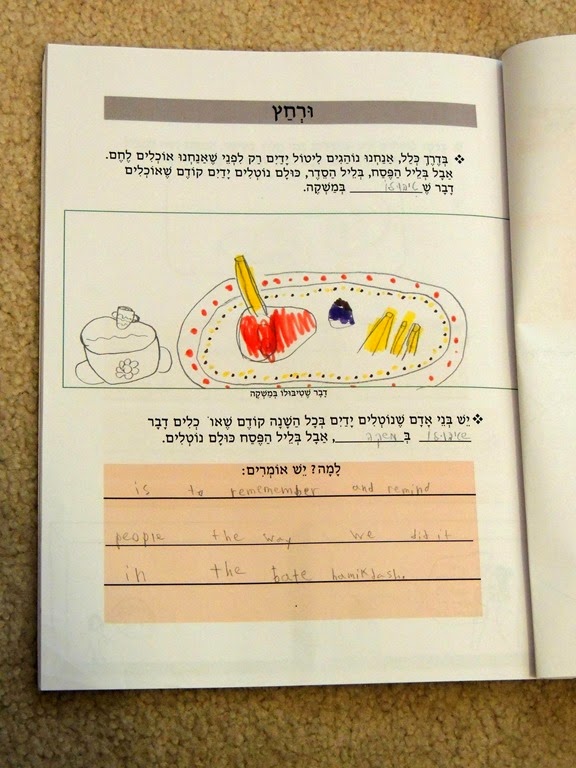 וּרְחַץ
❖ בְּדֶרֶךְ כְּלָל, אֲנַחְנוּ נוֹהֲגִים לִיטוֹל יָדַיִם רַק לִפְנֵי שֶׁאֲנַחְנוּ אוֹכְלִים לֶחֶם.
אֲבָל בְּלֵיל הַפֶּסַח, בְּלֵיל הַסֵדֶר, כּוּלָם נוֹטְלִים יָדַיִם קוֹדֶם שֶׁאוֹכְלִים
דָבָר שֶׁ טיבולו בְּמַשְׁקֶה.
דָבָר שֶׁטִיבּוּלוֹ בְּמַשְׁקֶה
❖ יֵשׁ בְּנֵי אָדָם שֶׁנוֹטְלִים יָדַיִם בְּכָל הַשָׁנָה קוֹדֶם שֶׁאוֹ כְלִים דָבָר
שטיבולו בְּ משקה, אֲבָל בְּלֵיל הַפֶּסַח כּוּלָם נוֹטְלִים.
לָמָה? יֵשׁ אוֹמְרִים:
is to rememember and remind
people the way we did it
in the bate hamikdash.